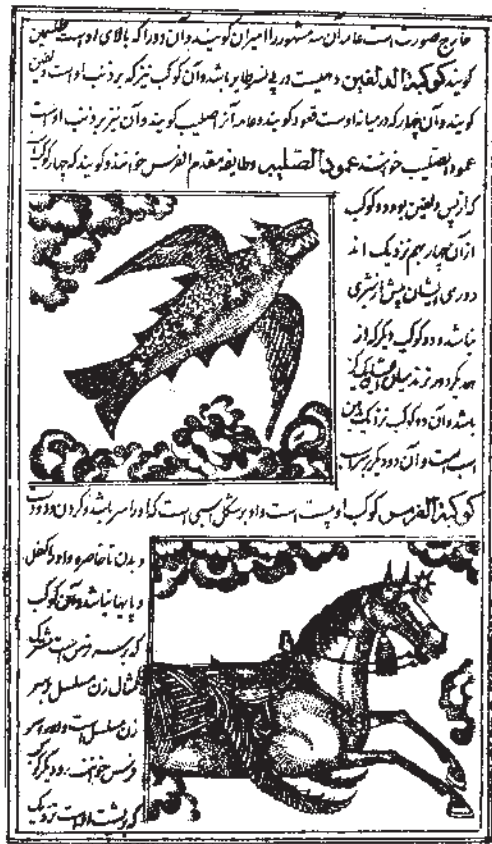 خارج صورت است عامه آن سه مشهور را میزان کویند و آن دو را که بالای اوست ظلیمین
کویند کوکبة الدلفین ده است در پی نسر طایر باشد و آن کوکب نیز که بر ذنب اوست دلفین
کویند و آن چهار که در میانه اوست قعود کویند و عامه آنرا صلیب کویند و آن نیز بر ذنب اوست
عمود الصلیب خوانند عمود الصلیب و طایفه مقدم الفرس خوانند و کویند که چهار کوکب
که از پس دلفین بود دو کوکب
از آن چهار بهم نزدیک اند
دوری ایشان پیش از شبری
نباشد و دو کوکب دیگر که از
همدیکر دورترند میان
باشد و آن دو کوکب نزدیک بدهن
اسب است و آن دو دیگر بر سر
کوکبة الفرس کوکب او بیست است و او بر شکل اسبی است که او را سر باشد و کردن و دو دست
و بدن تا خاصره و او را کفل
و پایها نباشد و آن کوکب
که بر سره فرس است مشترک
زن مسلسل و سر
زن مسلسل است و او را سر
فرس خوانند و دیگر کوکب
که بر پشت اوست نزدیک